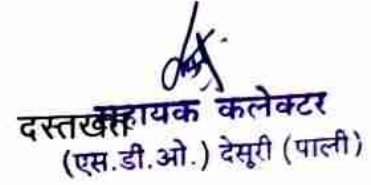 दस्तखत सहायक कलेक्टर
(एस.डी.ओ.) देसूरी (पाली)